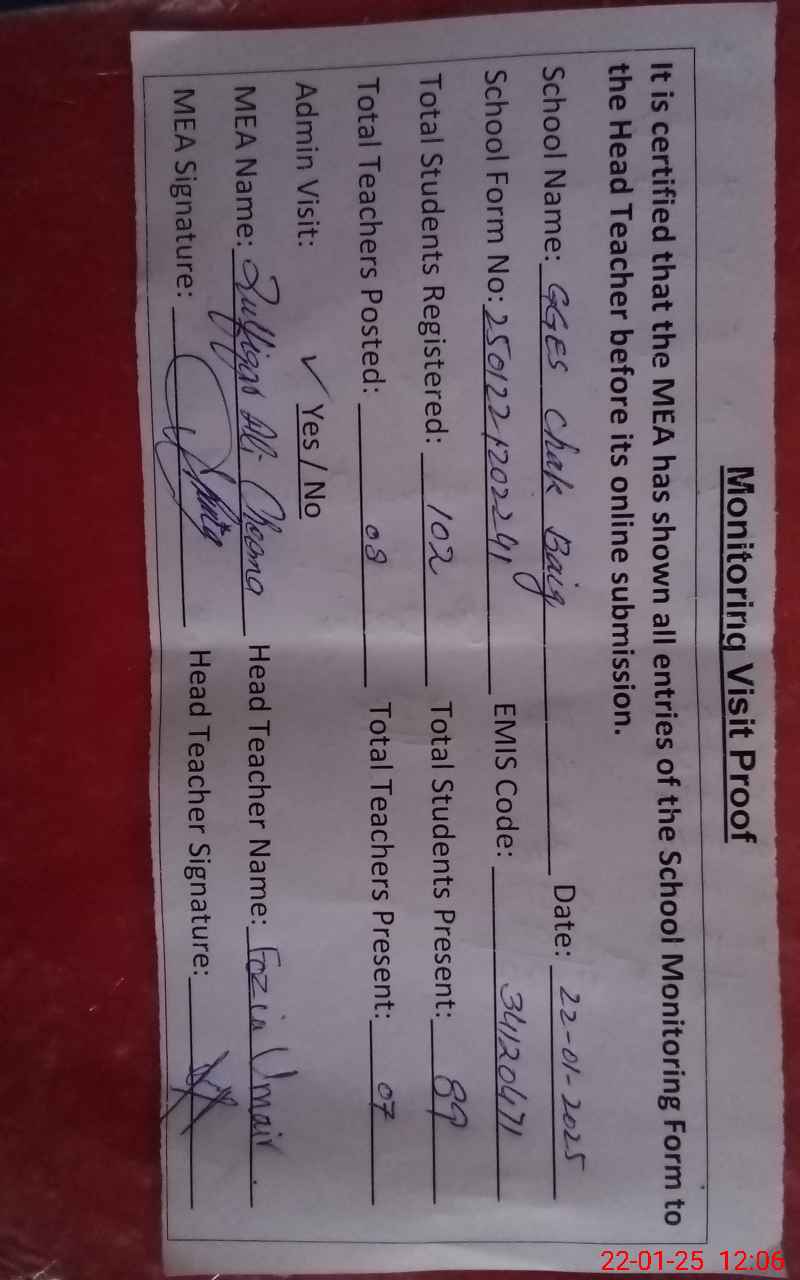 Monitoring Visit Proof
It is certified that the MEA has shown all entries of the School Monitoring Form to
the Head Teacher before its online submission.
School Name: GGES Chak Baig Date: 22-01-2025
School Form No: EMIS Code: 34120471
Total Students Registered: 102 Total Students Present: 89
Total Teachers Posted: 08 Total Teachers Present: 07
Admin Visit: ✓ Yes / No
MEA Name: Zulfiqar Ali Cheema Head Teacher Name: Fozia Umair
MEA Signature: Head Teacher Signature:
22-01-25 12:06